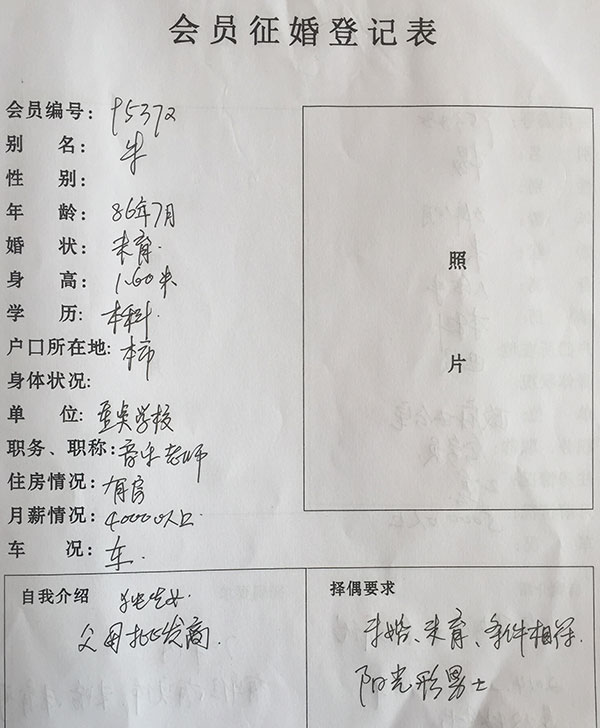 会员征婚登记表
会员编号: 95372
别 名: 朱
性 别:
年 龄: 86年7月
婚 状: 未育.
身 高: 1.60米
学 历: 本科.
户口所在地: 本市
身体状况:
单 位: 学校
职务、职称: 音乐老师
住房情况: 有房
月薪情况: 40000以上
车 况: 车.
照
片
自我介绍 独生女.
父母批发商.
择偶要求
未婚、未育、条件相符.
阳光形男士